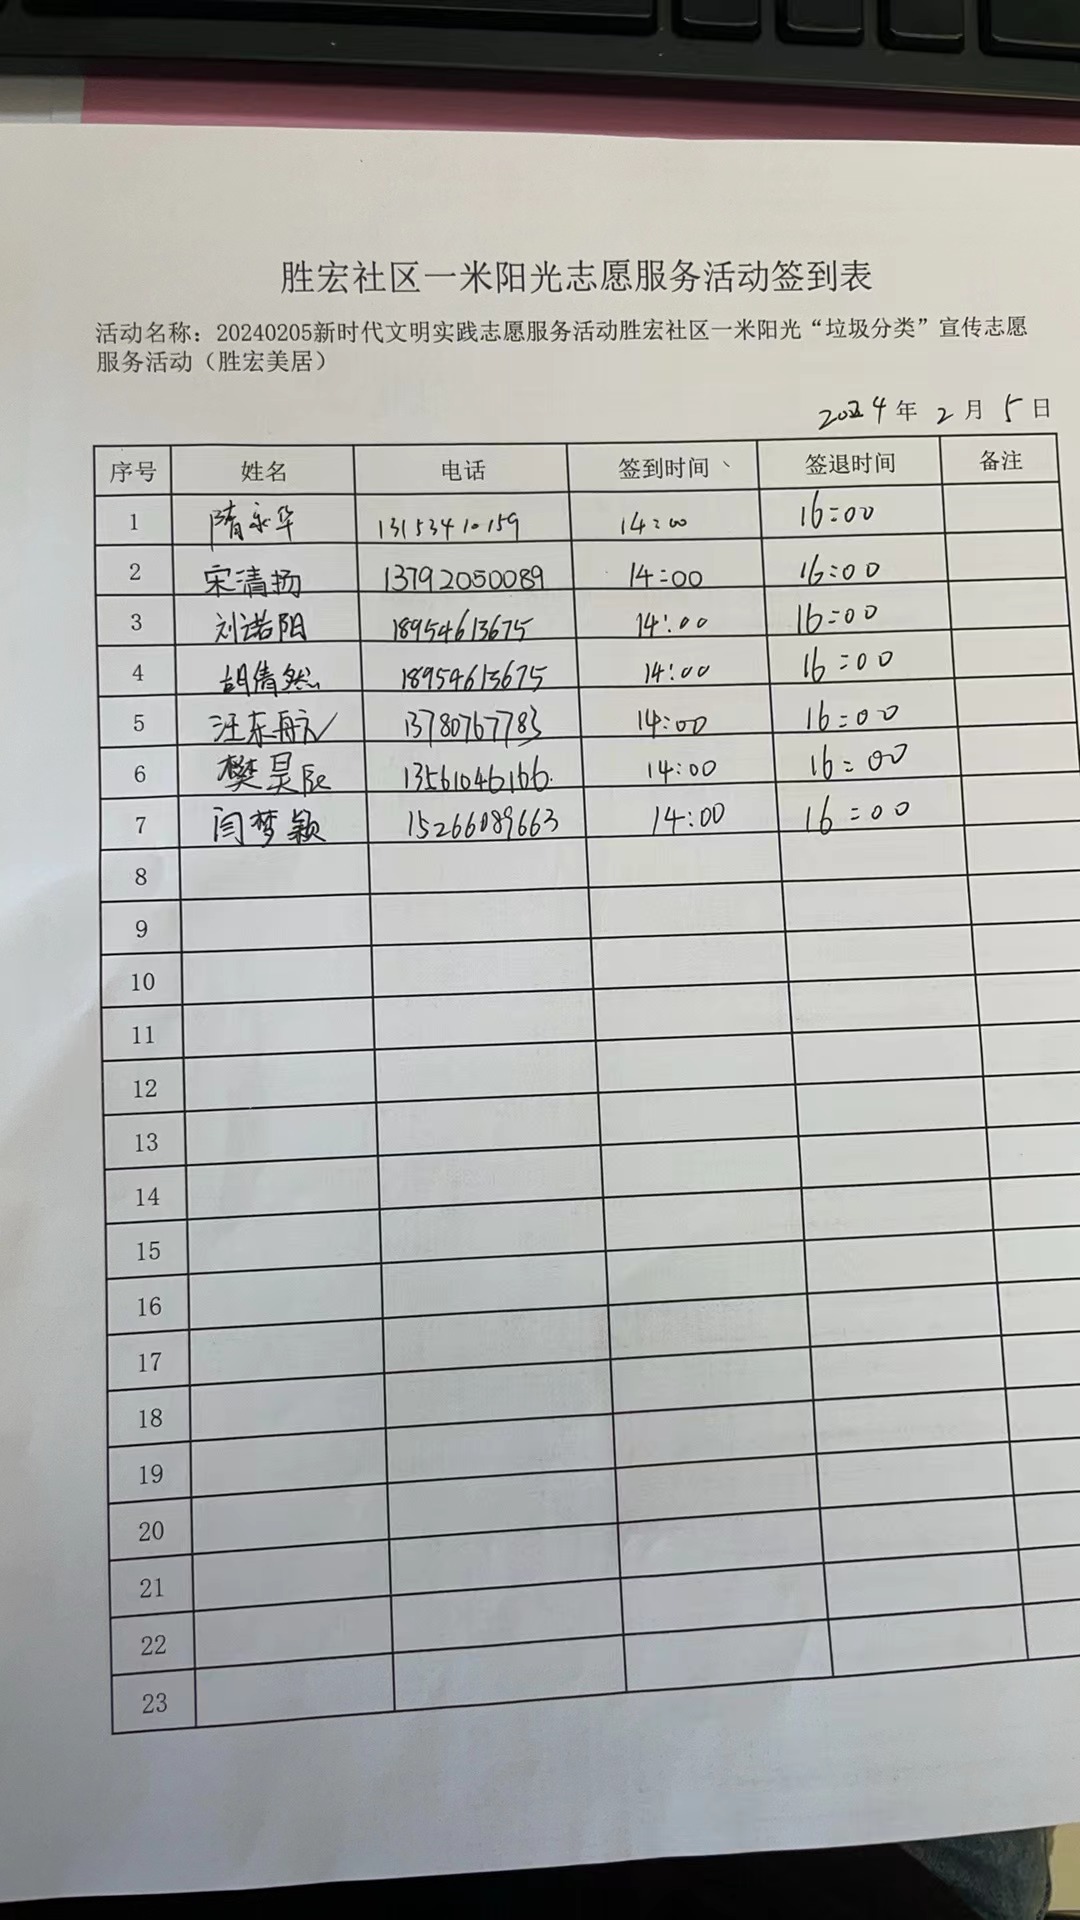 胜宏社区一米阳光志愿服务活动签到表
活动名称：20240205新时代文明实践志愿服务活动胜宏社区一米阳光“垃圾分类”宣传志愿
服务活动（胜宏美居）
2024年2月5日
序号 姓名 电话 签到时间 签退时间 备注
1 隋永华 13153410159 14:00 16:00
2 宋清扬 13792050089 14:00 16:00
3 刘诺阳 18954613675 14:00 16:00
4 胡倩然 18954613675 14:00 16:00
5 汪东航 13780767783 14:00 16:00
6 樊昊辰 13561046166 14:00 16:00
7 闫梦颖 15266089663 14:00 16:00
8
9
10
11
12
13
14
15
16
17
18
19
20
21
22
23